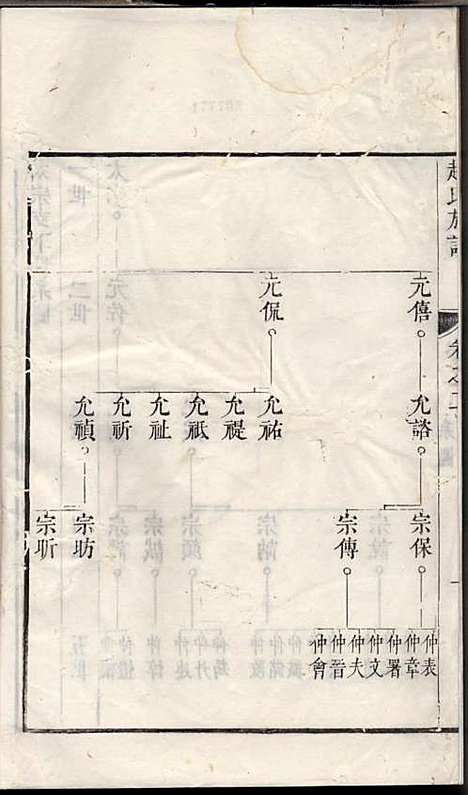 趙氏族譜
卷之二
元僖
元侃
允諮
允祐
允禔
允祇
允祉
允祈
允禎
宗保
宗傳
宗昉
宗昕
仲表
仲章
仲署
仲文
仲夫
仲晉
仲會